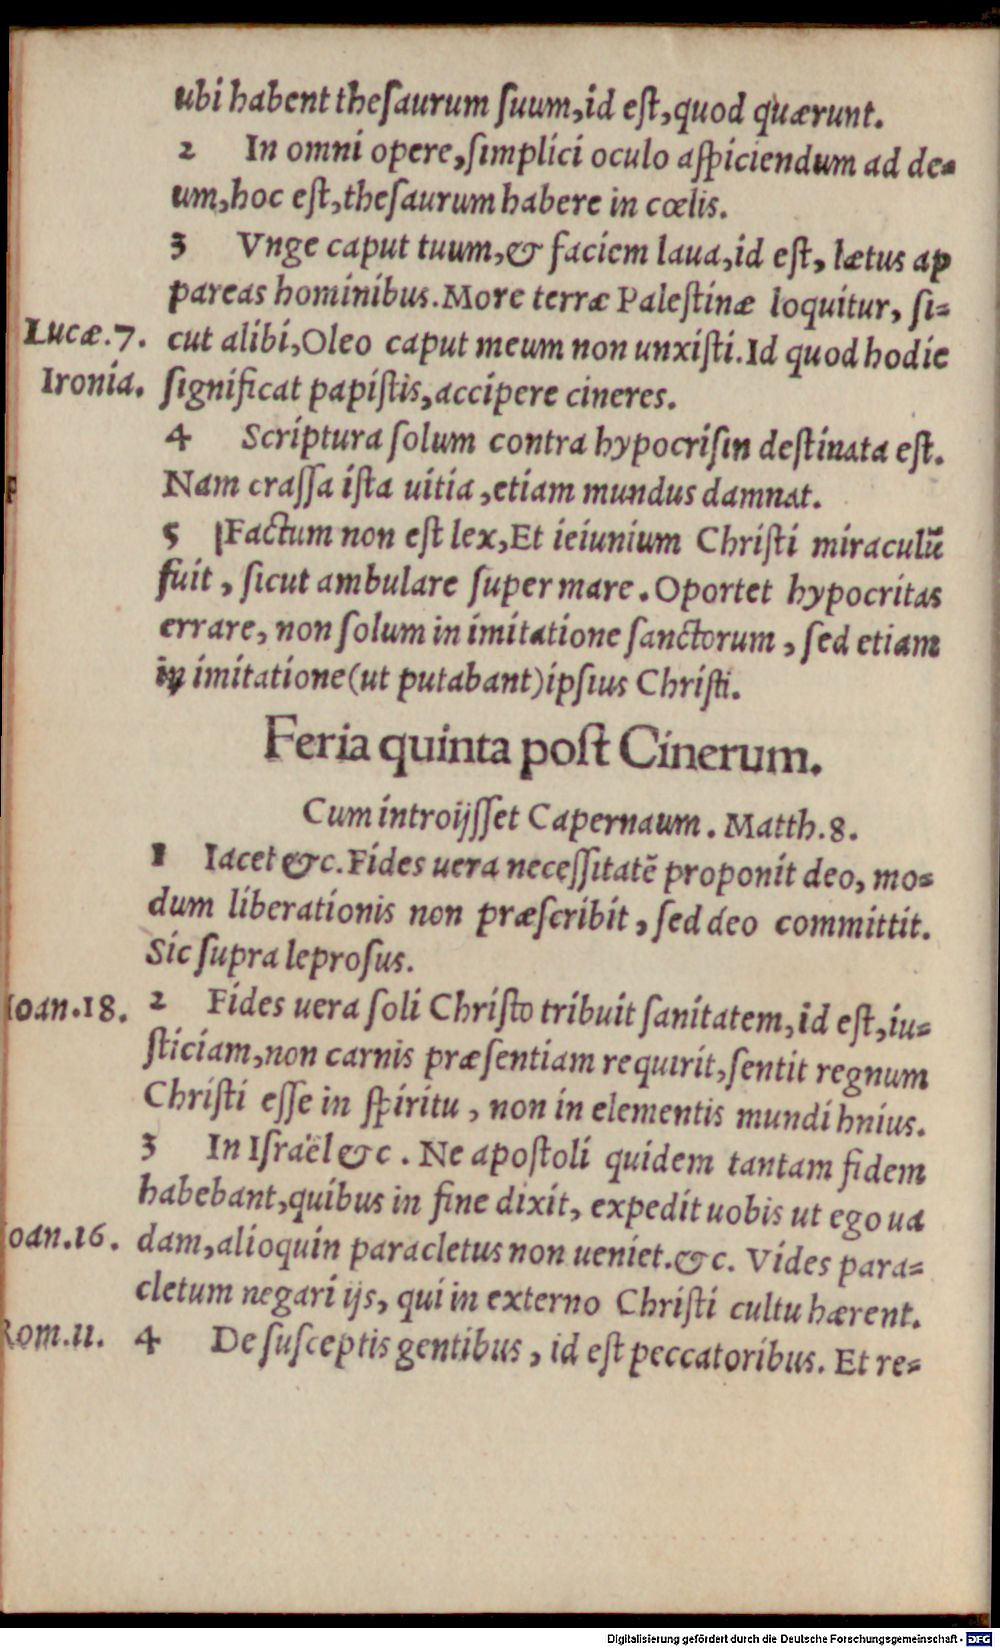 ubi habent theſaurum ſuum,id eſt,quod quærunt.
2 In omni opere,ſimplici oculo aſpiciendum ad de=
um,hoc eſt,theſaurum habere in cœlis.
3 Vnge caput tuum,& faciem laua,id eſt, lætus ap
pareas hominibus.More terræ Paleſtinæ loquitur, ſi=
Lucæ.7. cut alibi,Oleo caput meum non unxiſti.Id quod hodie
Ironia. ſignificat papiſtis,accipere cineres.
4 Scriptura ſolum contra hypocriſin deſtinata eſt.
Nam craſſa iſta uitia,etiam mundus damnat.
5 Factum non eſt lex,Et ieiunium Chriſti miraculũ
fuit, ſicut ambulare ſuper mare. Oportet hypocritas
errare, non ſolum in imitatione ſanctorum, ſed etiam
in imitatione(ut putabant)ipſius Chriſti.
Feria quinta poſt Cinerum.
Cum introijſſet Capernaum. Matth.8.
1 Iacet &c.Fides uera neceſſitatẽ proponit deo, mo=
dum liberationis non præſcribit, ſed deo committit.
Sic ſupra leproſus.
Ioan.18. 2 Fides uera ſoli Chriſto tribuit ſanitatem,id eſt,iu=
ſticiam,non carnis præſentiam requirit,ſentit regnum
Chriſti eſſe in ſpiritu, non in elementis mundi hnius.
3 In Iſraël &c. Ne apoſtoli quidem tantam fidem
habebant,quibus in fine dixit, expedit uobis ut ego ua
Ioan.16. dam,alioquin paracletus non ueniet.&c. Vides para=
cletum negari ijs, qui in externo Chriſti cultu hærent.
Rom.11. 4 De ſuſceptis gentibus, id eſt peccatoribus. Et re=
Digitalisierung gefördert durch die Deutsche Forschungsgemeinschaft - DFG